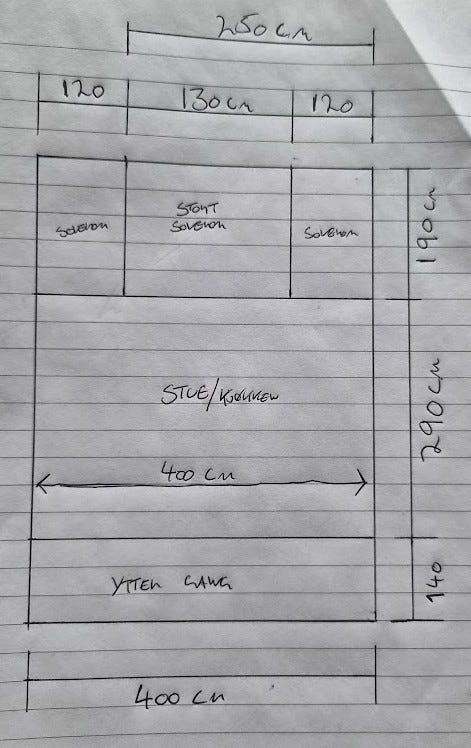 250 cm
120
130 cm
120
SOVEROM
STORT
SOVEROM
SOVEROM
190 cm
STUE/KJØKKEN
290 cm
400 cm
YTTER GANG
140
400 cm